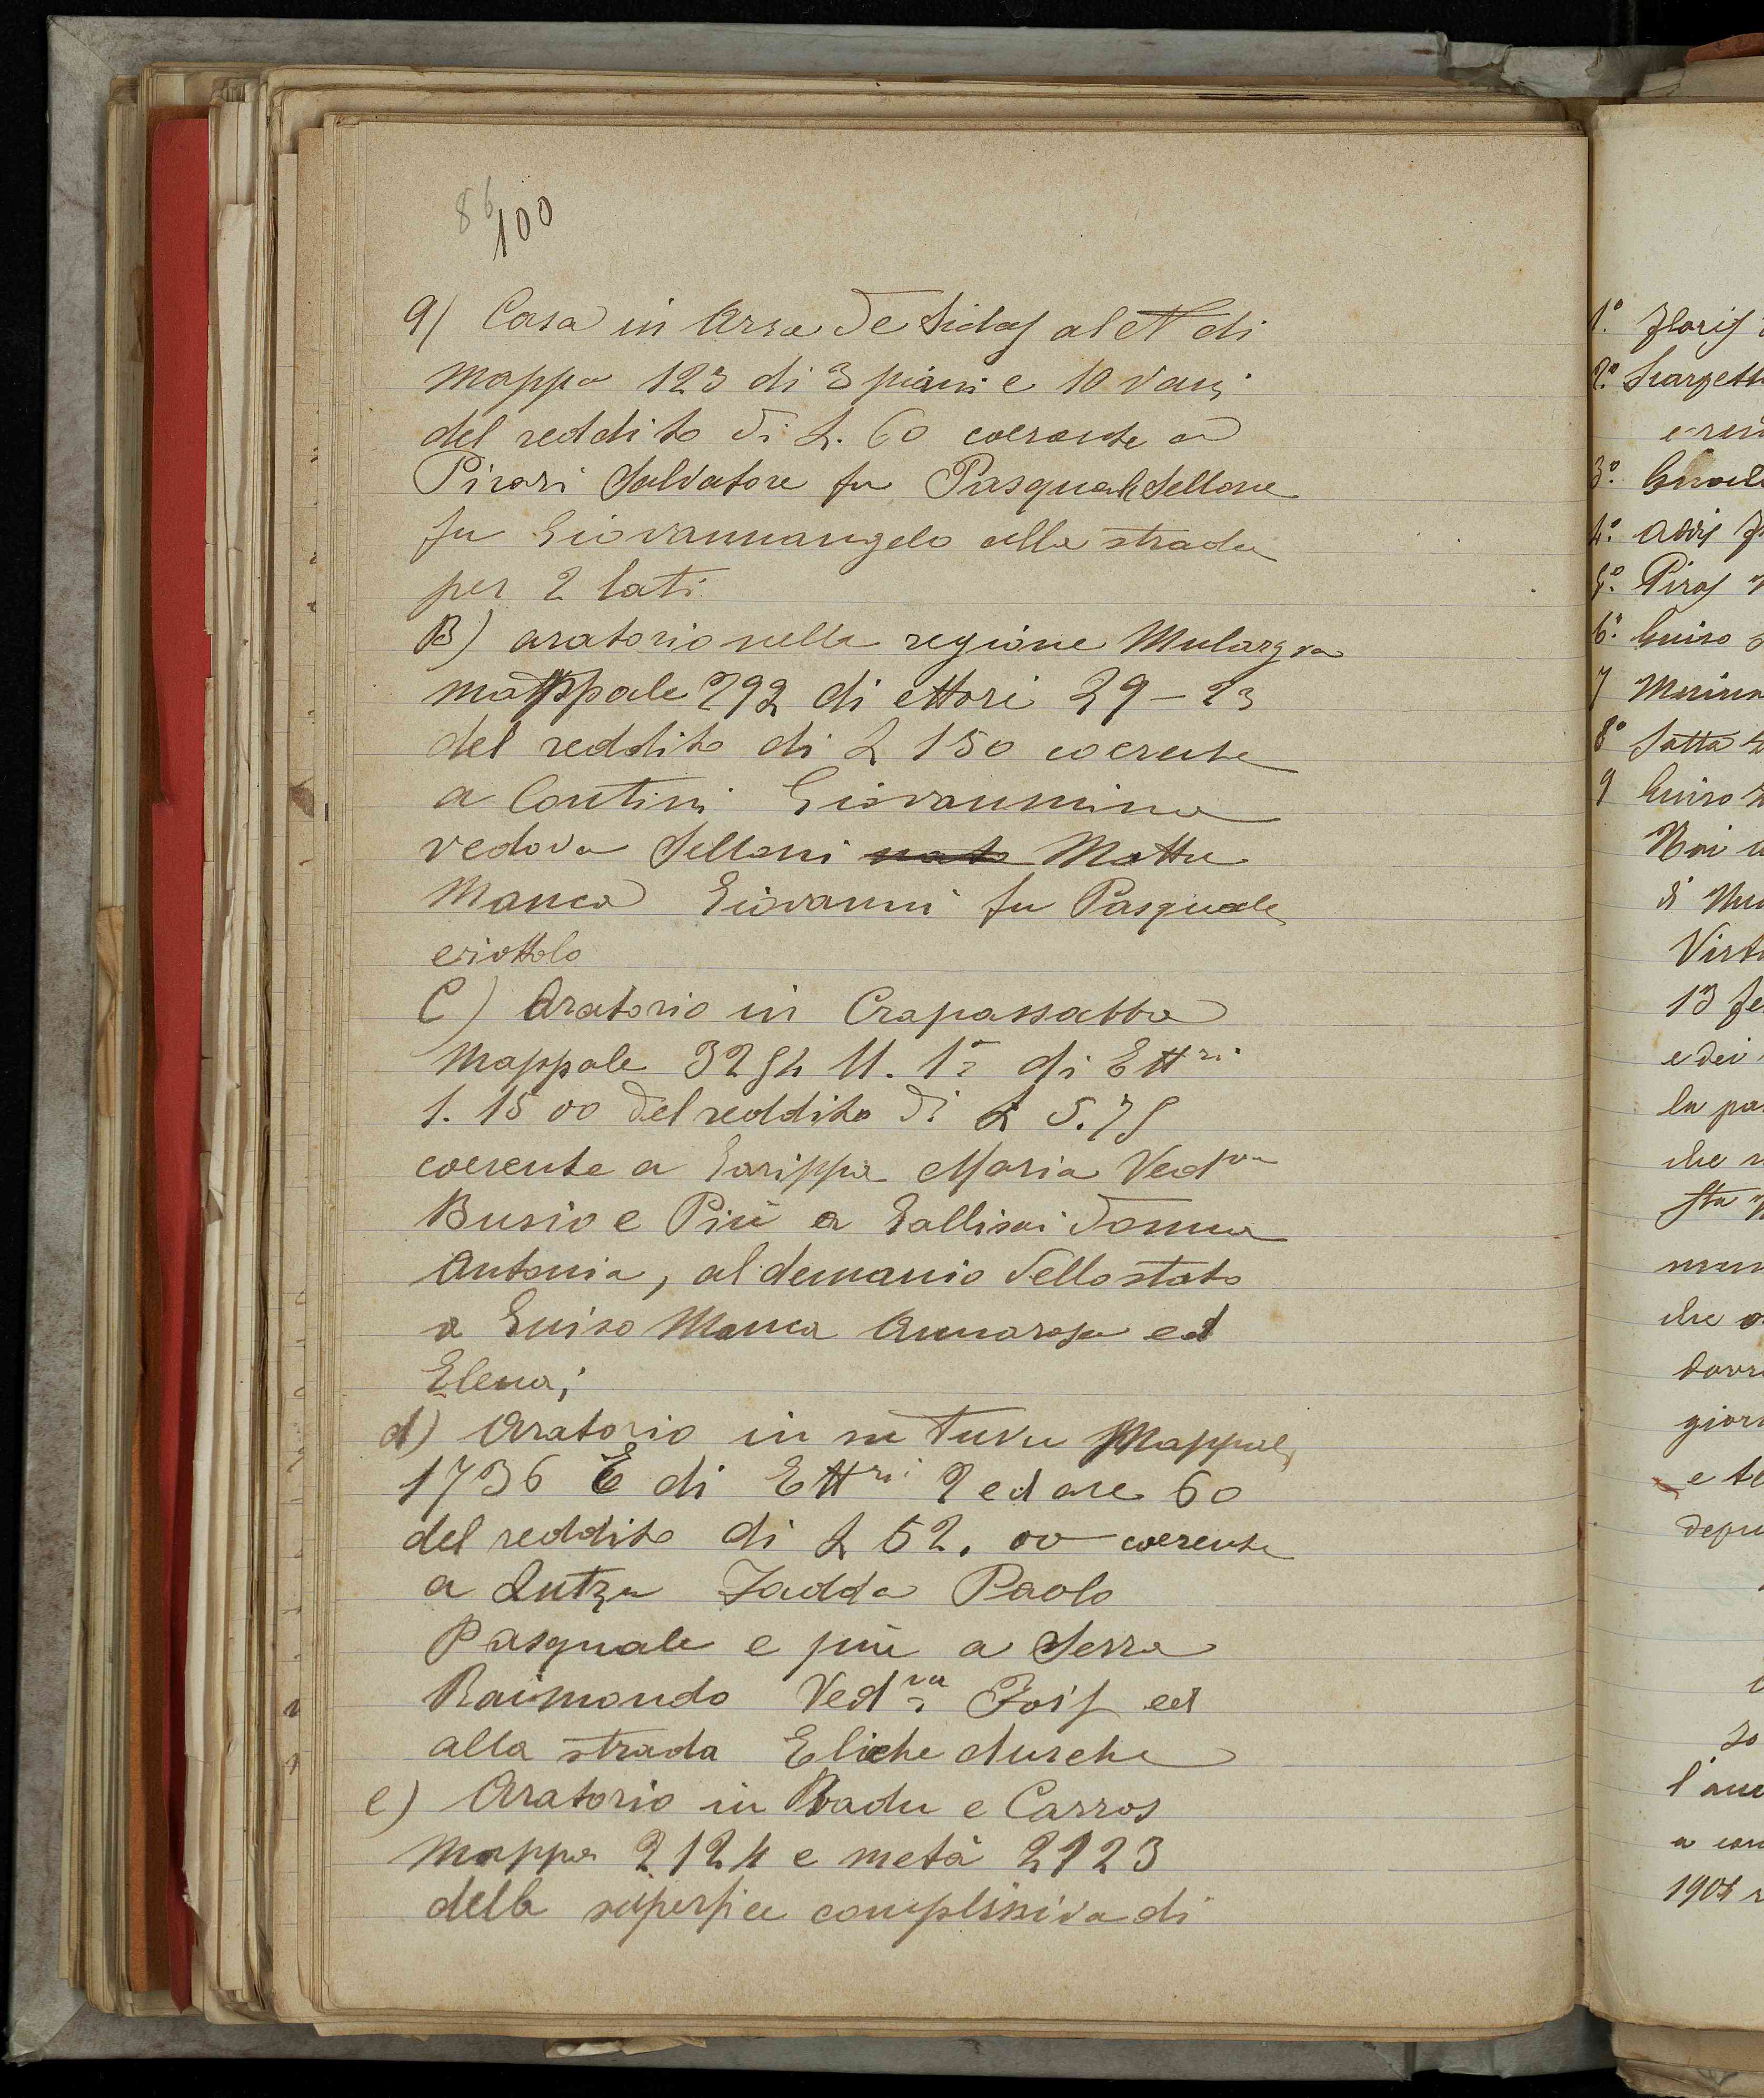 86
100
a) Casa in Arza de Sidas al N di
mappa 123 di 3 piani e 10 vani
del reddito di L. 60 coerente a
Pirari Salvatore fu Pasquale Sellone
fu Giovannangelo alla strada
per 2 lati
B) aratorio nella regione Mulargva
mappale 292 di ettori 29-23
del reddito di L 150 coerente
a Contini Giovannina
vedova Selloni nato Mattu
Manca Giovanni fu Pasquale
eriottolo
C) Aratorio in Crapassabba
Mappale 3254 11. 1ª di Ettri
1. 15 00 del reddito di L 5.75
coerente a Garippa Maria Vedva
Busio e Più a Gallisai Donna
Antonia, al demanio dello stato
a Guiso Manca Annarosa ed
Elena;
d) Aratorio in su Tuvu Mappale
1736 E di Ettri 2 ed are 60
del reddito di L 52.00 coerente
a Lutzu Zadda Paolo
Pasquale e più a Serra
Raimondo Vedva Fois ed
alla strada Eliche durche
e) Aratorio in Badu e Carros
Mappa 2124 e metà 2123
della superfice complissiva di
1º. Floris
2º. Scarpett
3º.
4º.
5º. Piras
6º. Guiso
7
8º Satta
9 Guiso
Noi
di
Vist
13 fe
e dei
la pa
che
sta
che
dovr
gior
e te
depu
l'an
a
190